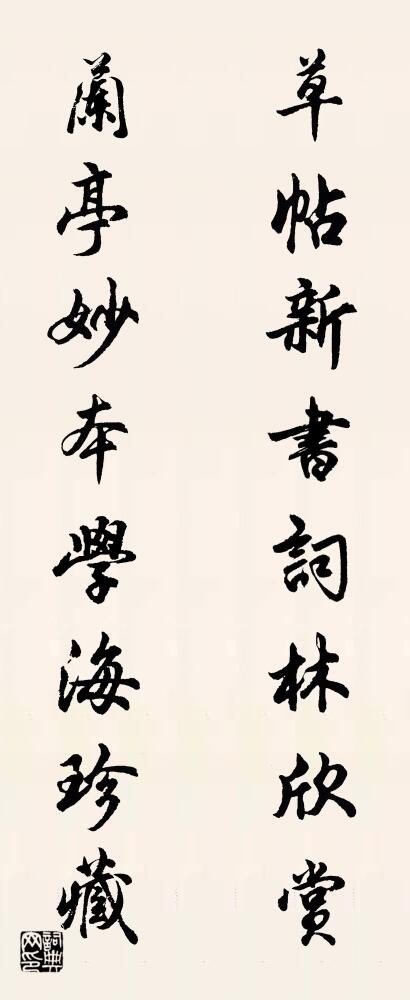 草帖新書詞林欣賞
蘭亭妙本學海珍藏